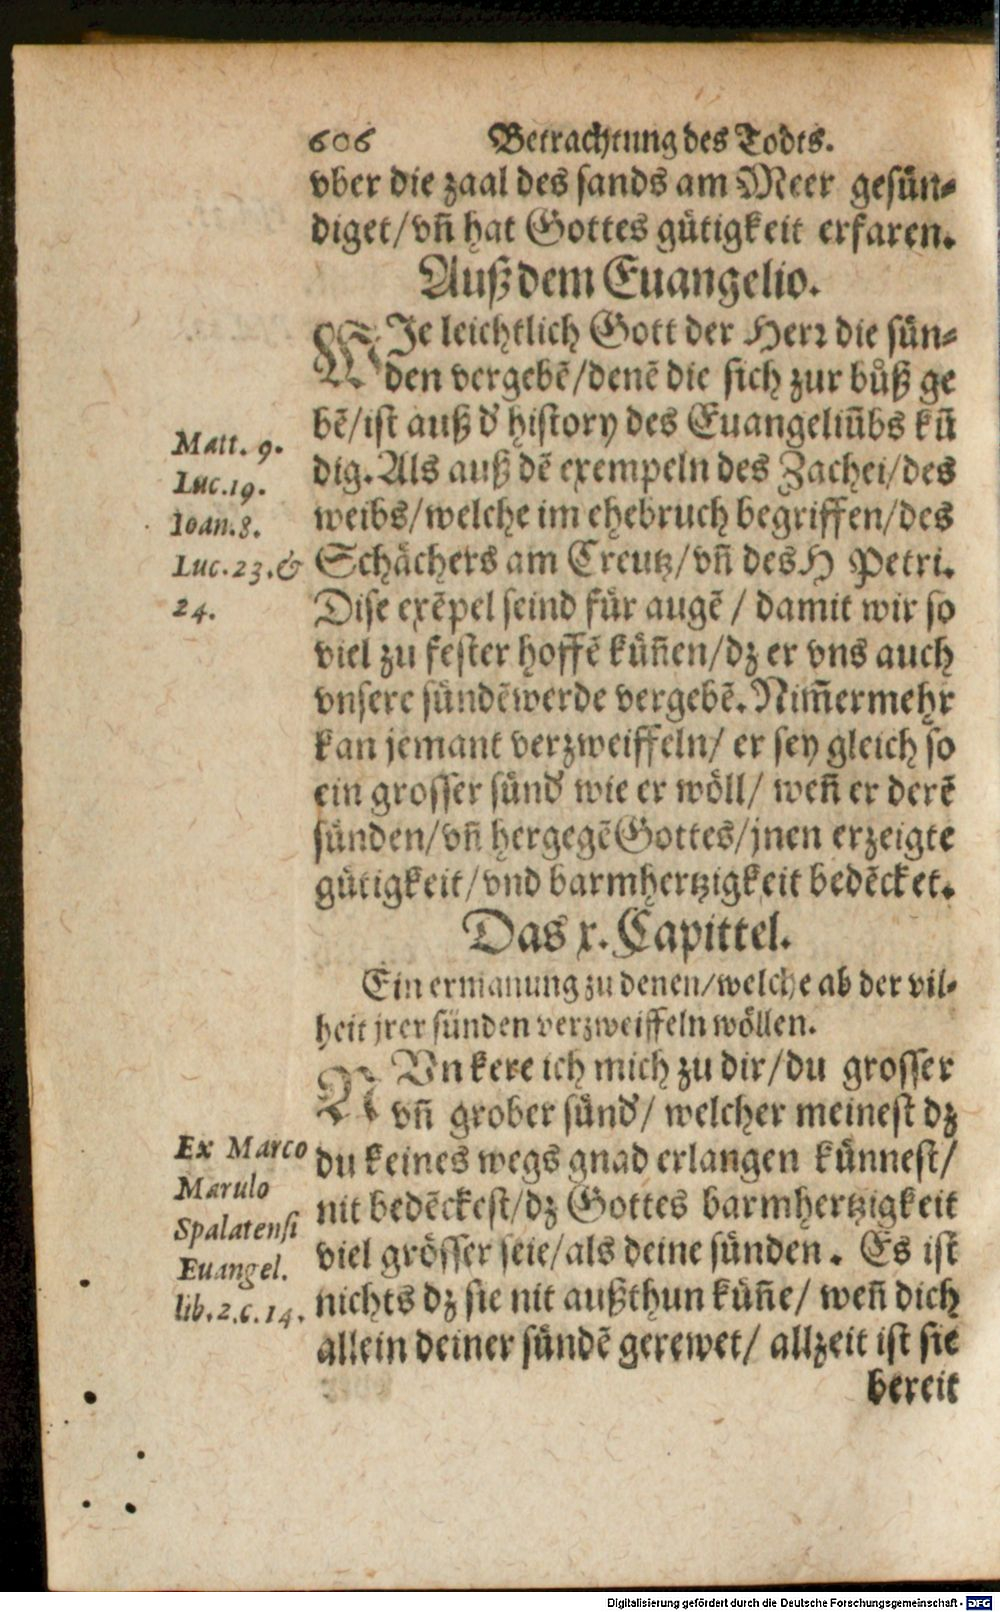 606 Betrachtung des Todts.
vber die zaal des sands am Meer gesün-
diget/vn̄ hat Gottes gütigkeit erfaren.
Auß dem Euangelio.
WIe leichtlich Gott der Herꝛ die sün-
den vergebē/denē die sich zur bůß ge
bē/ist auß d' history des Euangeliūbs kū
dig. Als auß dē exempeln des Zachei/des
weibs/welche im ehebruch begriffen/des
Schächers am Creutz/vn̄ des H Petri.
Dise exēpel seind für augē / damit wir so
viel zu fester hoffē kün̄en/dz er vns auch
vnsere sündē werde vergebē. Nim̄ermehr
kan jemant verzweiffeln/ er sey gleich so
ein grosser sünd' wie er wöll/ wen̄ er derē
sünden/vn̄ hergegē Gottes/jnen erzeigte
gütigkeit/vnd barmhertzigkeit bedēcket.
Matt. 9.
Luc.19.
Ioan.8.
Luc.23.&
24.
Das x. Capittel.
Ein ermanung zu denen/welche ab der vil-
heit jrer sünden verzweiffeln wöllen.
NVn kere ich mich zu dir/du grosser
vn̄ grober sünd'/ welcher meinest dz
du keines wegs gnad erlangen künnest/
nit bedēckest/dz Gottes barmhertzigkeit
viel grösser seie/als deine sünden. Es ist
nichts dz sie nit außthun kün̄e/ wen̄ dich
allein deiner sündē gerewet/ allzeit ist sie
bereit
Ex Marco
Marulo
Spalatensi
Euangel.
lib.2.c.14.
Digitalisierung gefördert durch die Deutsche Forschungsgemeinschaft - DFG